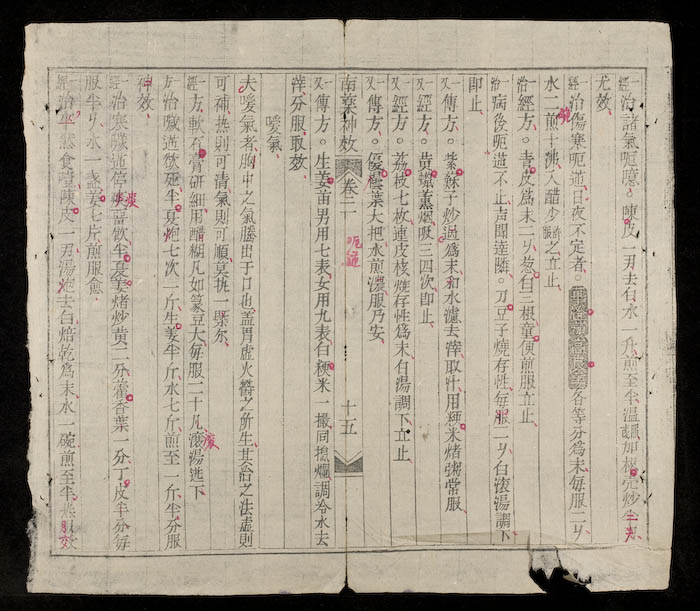 經治諸氣呃噫。陳皮一刃去白水一斤煎至半溫服加枳壳炒半
尤效
經治傷寒呃逆日夜不定者。各等分爲末每服二
碗
水二煎十沸入醋少許服之立止
治經方。青皮爲末二葱白三根童便煎服立止
治病後呃逆不止声聞逹隣。刀豆子燒存性每服二白滾湯調下
即止
又傳方。紫蘇子炒過爲末和水濾去滓取汁用粳米煑粥常服
又經方。黄蠟薰烟吸三四次即止
又經方。荔枝七枚連皮核燒存性爲末白湯調下立止
又傳方。葉大把水煎濃服乃安
南藥神效 卷二 呃逆 十五
又傳方。生姜苗男用七表女用九表白粳米一撮同搗爛調冷水去
滓分服取效
噯氣
夫噯氣者胸中之氣騰出于口也盖胃虚火欝之所生其治之法虚則
可補热則可清氣則可順莫执一槩尔
經一方軟石膏研細用醋糊凡如菉豆大每服二十凡滾湯送下
滚
方治臟逆飲死半夏炮七次一斤生姜半斤水七斤煎至一斤半分服
神效
經治寒臟逆停痰畱飲半夏煑烤炒黄二分藿香葉一分丁皮半分每
痰
服半水一盏姜七片煎服愈
經治半愁食噎陳皮一刃湯泡去白焙乾爲末水一碗煎至半热服效